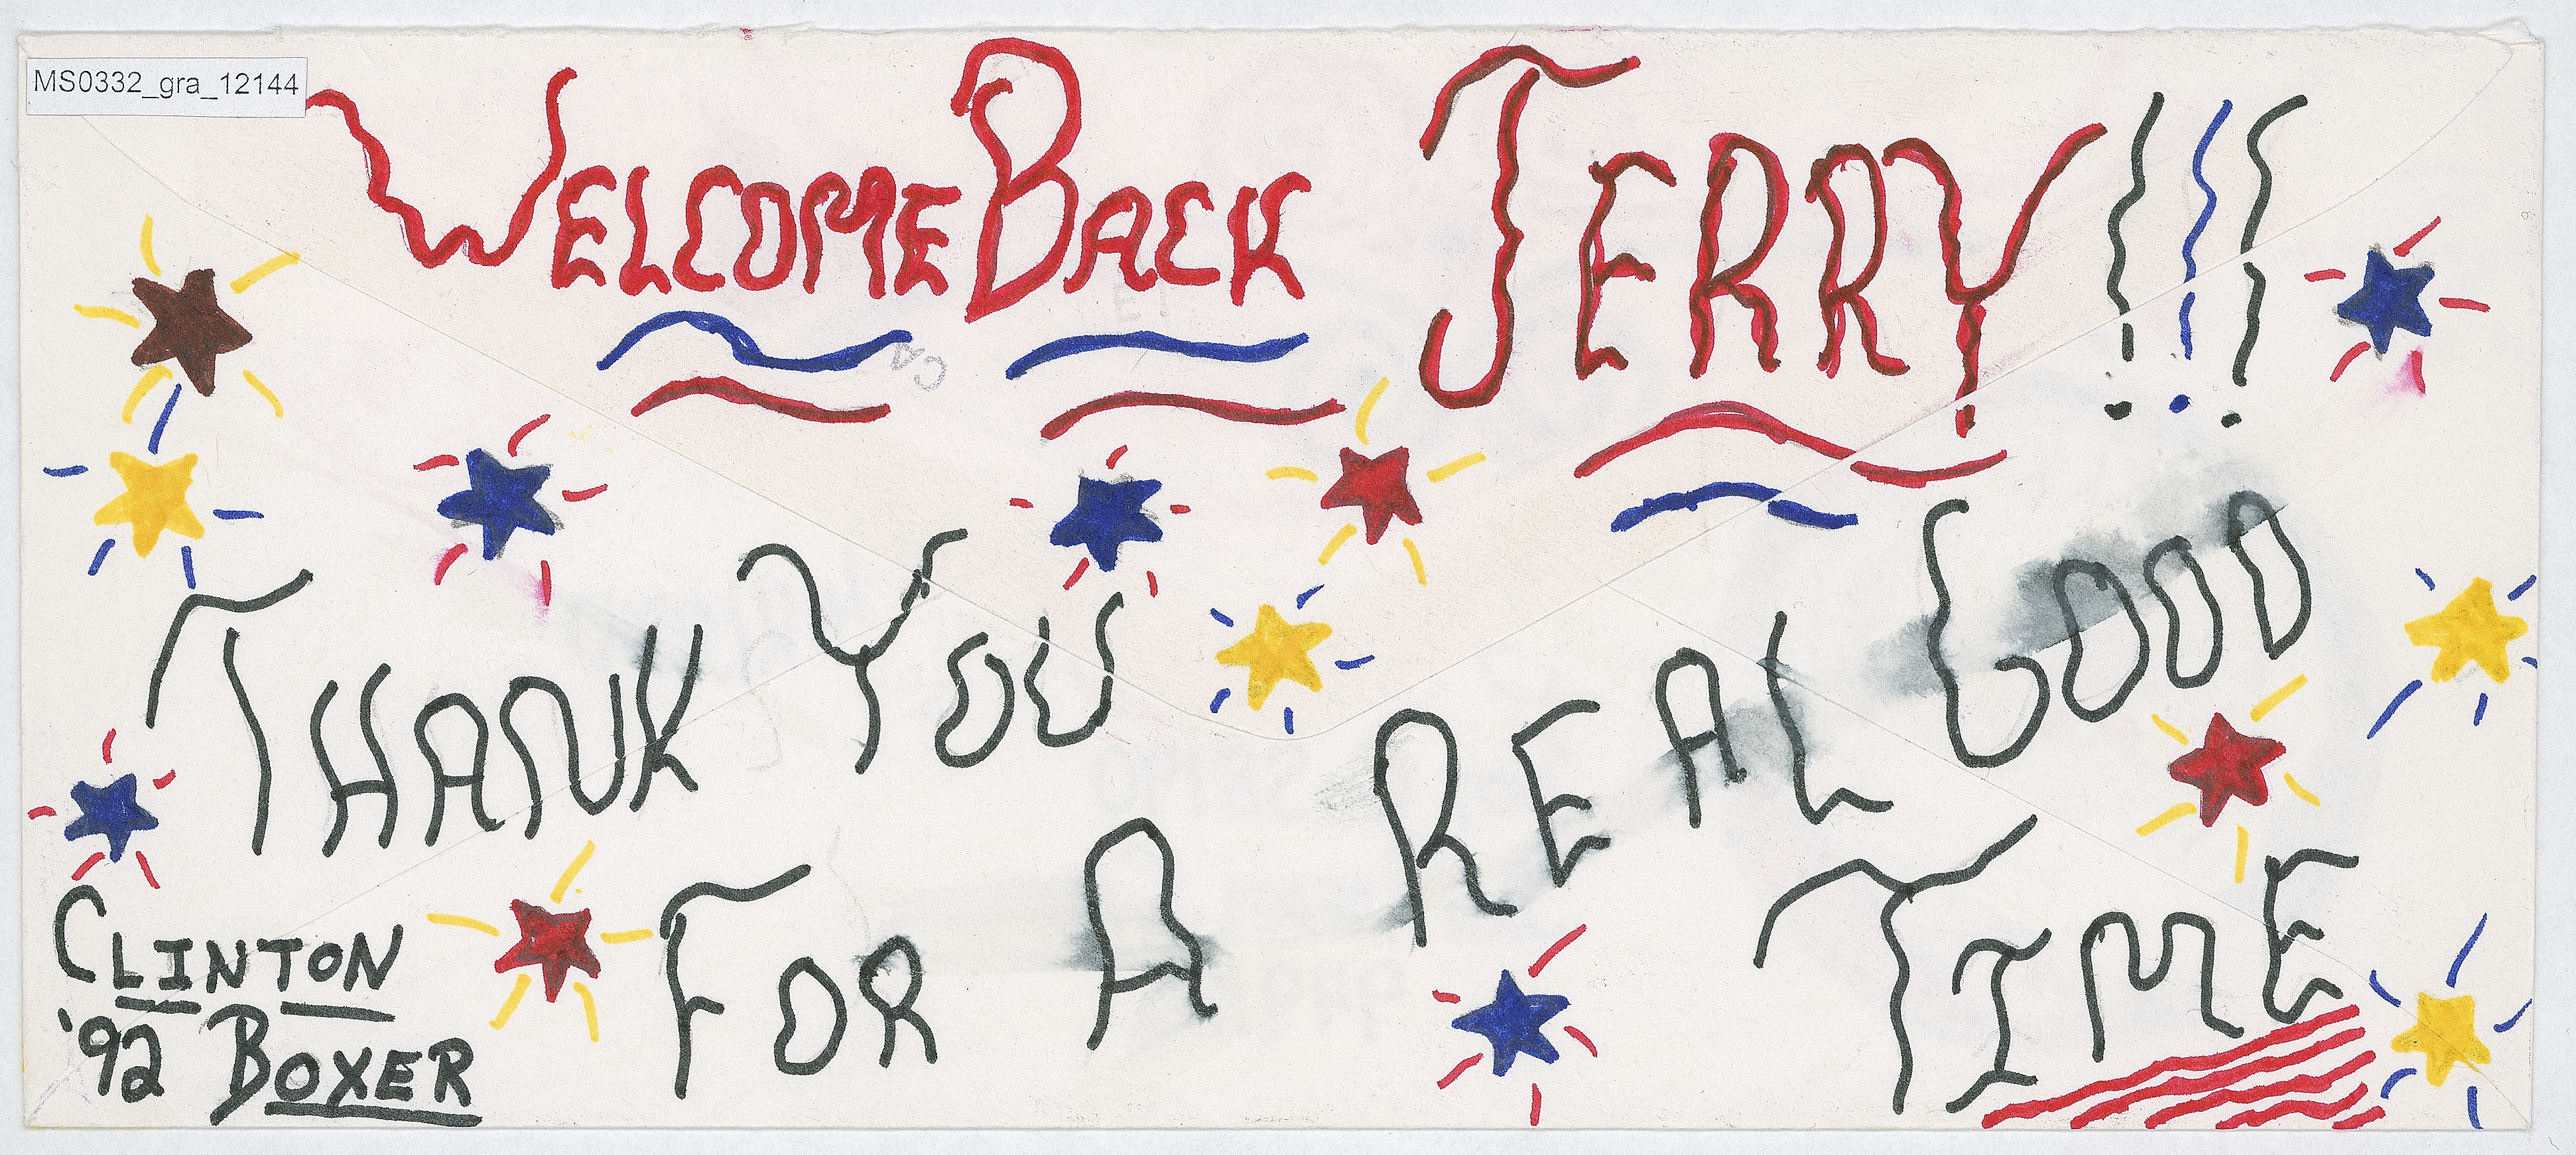 MS0332_gra_12144
WELCOME BACK JERRY!!!
THANK YOU
FOR A REAL GOOD
TIME
CLINTON
'92 BOXER